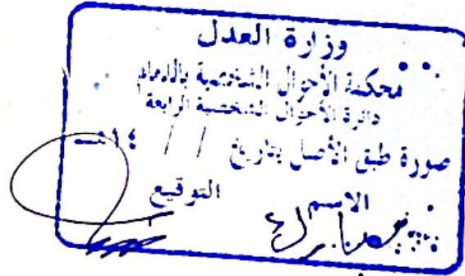 وزارة العدل
محكمة الأحوال الشخصية بالدمام
دائرة الأحوال الشخصية الرابعة
صورة طبق الأصل بتاريخ / / ١٤هـ
الاسم التوقيع